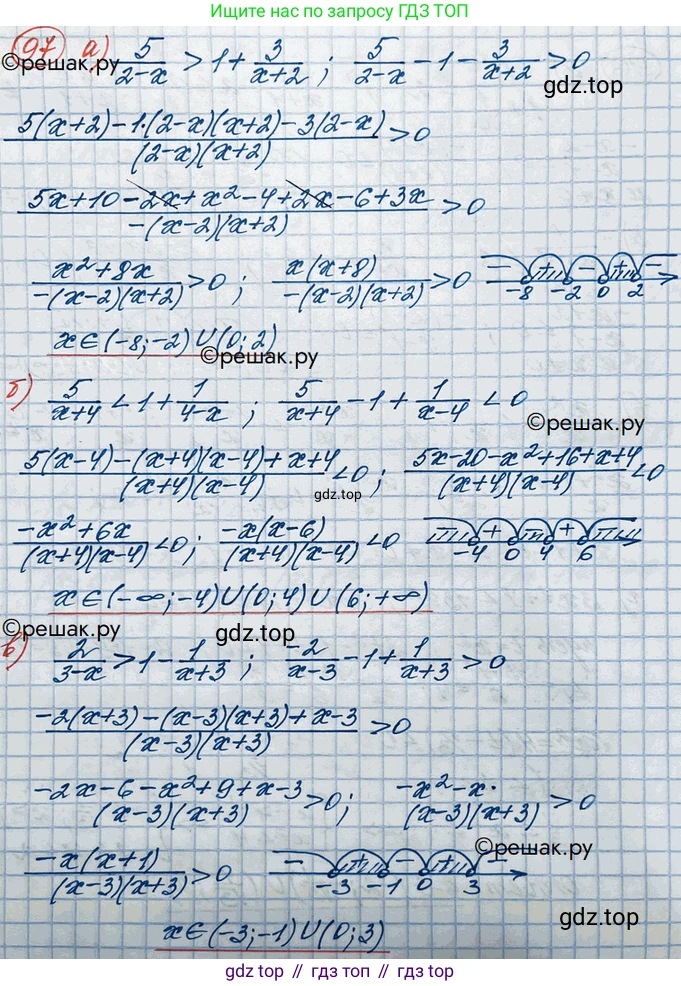 Ищите ответы по запросу ГДЗ ТОП
97 а) 5/(2-x) > 1 + 3/(x+2) ; 5/(2-x) - 1 - 3/(x+2) > 0
©решак.ру
gdz.top
(5(x+2) - 1·(2-x)(x+2) - 3(2-x))/((2-x)(x+2)) > 0
(5x+10-2x+x²-4+2x-6+3x)/(-(x-2)(x+2)) > 0
(x²+8x)/(-(x-2)(x+2)) > 0 ; x(x+8)/(-(x-2)(x+2)) > 0 - + - + - -8 -2 0 2
x∈(-8;-2)∪(0;2)
©решак.ру
б) 5/(x+4) < 1 + 1/(4-x) ; 5/(x+4) - 1 + 1/(x-4) < 0
©решак.ру
(5(x-4)-(x+4)(x-4)+x+4)/((x+4)(x-4)) < 0 ; (5x-20-x²+16+x+4)/((x+4)(x-4)) < 0
gdz.top
(-x²+6x)/((x+4)(x-4)) < 0 ; -x(x-6)/((x+4)(x-4)) < 0 + + -4 0 4 6
x∈(-∞;-4)∪(0;4)∪(6;+∞)
©решак.ру
gdz.top
в) 2/(3-x) > 1 - 1/(x+3) ; -2/(x-3) - 1 + 1/(x+3) > 0
(-2(x+3)-(x-3)(x+3)+x-3)/((x-3)(x+3)) > 0
(-2x-6-x²+9+x-3)/((x-3)(x+3)) > 0 ; (-x²-x)/((x-3)(x+3)) > 0
©решак.ру
-x(x+1)/((x-3)(x+3)) > 0 - + - + - -3 -1 0 3
x∈(-3;-1)∪(0;3)
gdz.top
gdz top // гдз топ // gdz.top